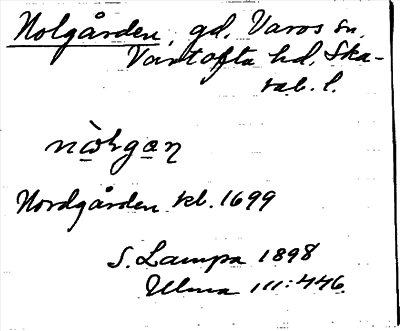 Nolgården, gd, Varvs sn,
Vartofta hd, Ska-
rab. l.
Nordgården kb. 1699
S. Lampa 1898
Ulma 111:446.